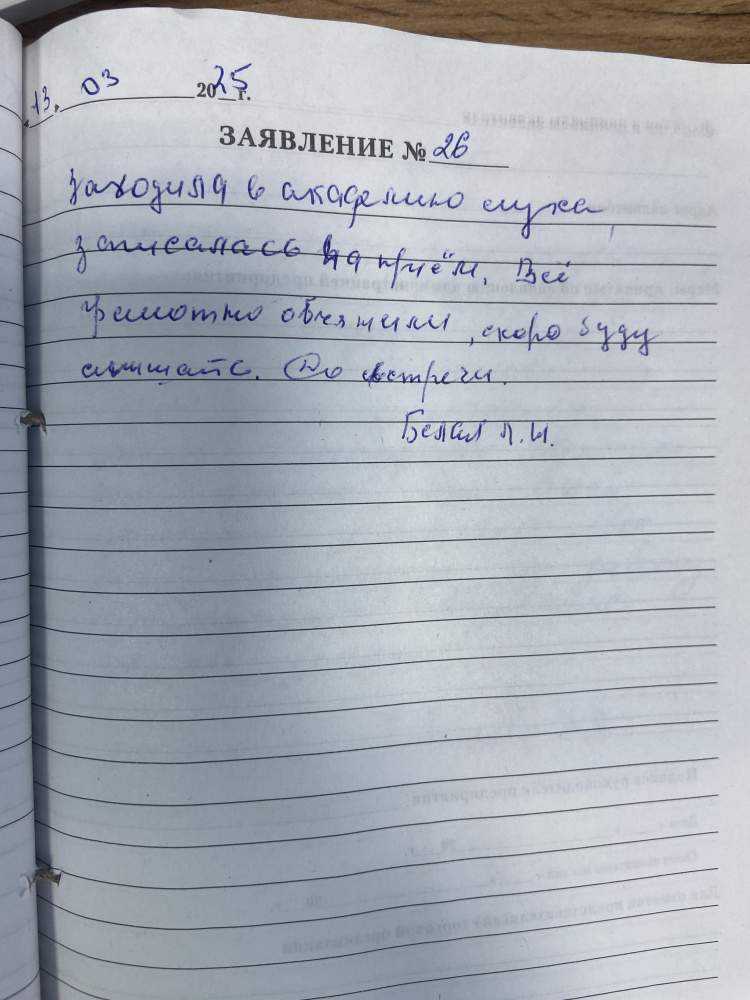 13. 03 2025 г.
ЗАЯВЛЕНИЕ № 26
Заходила в академию слуха,
записалась на приём. Всё
грамотно обьяснили, скоро буду
слышать. До встречи.
Белая Л.И.